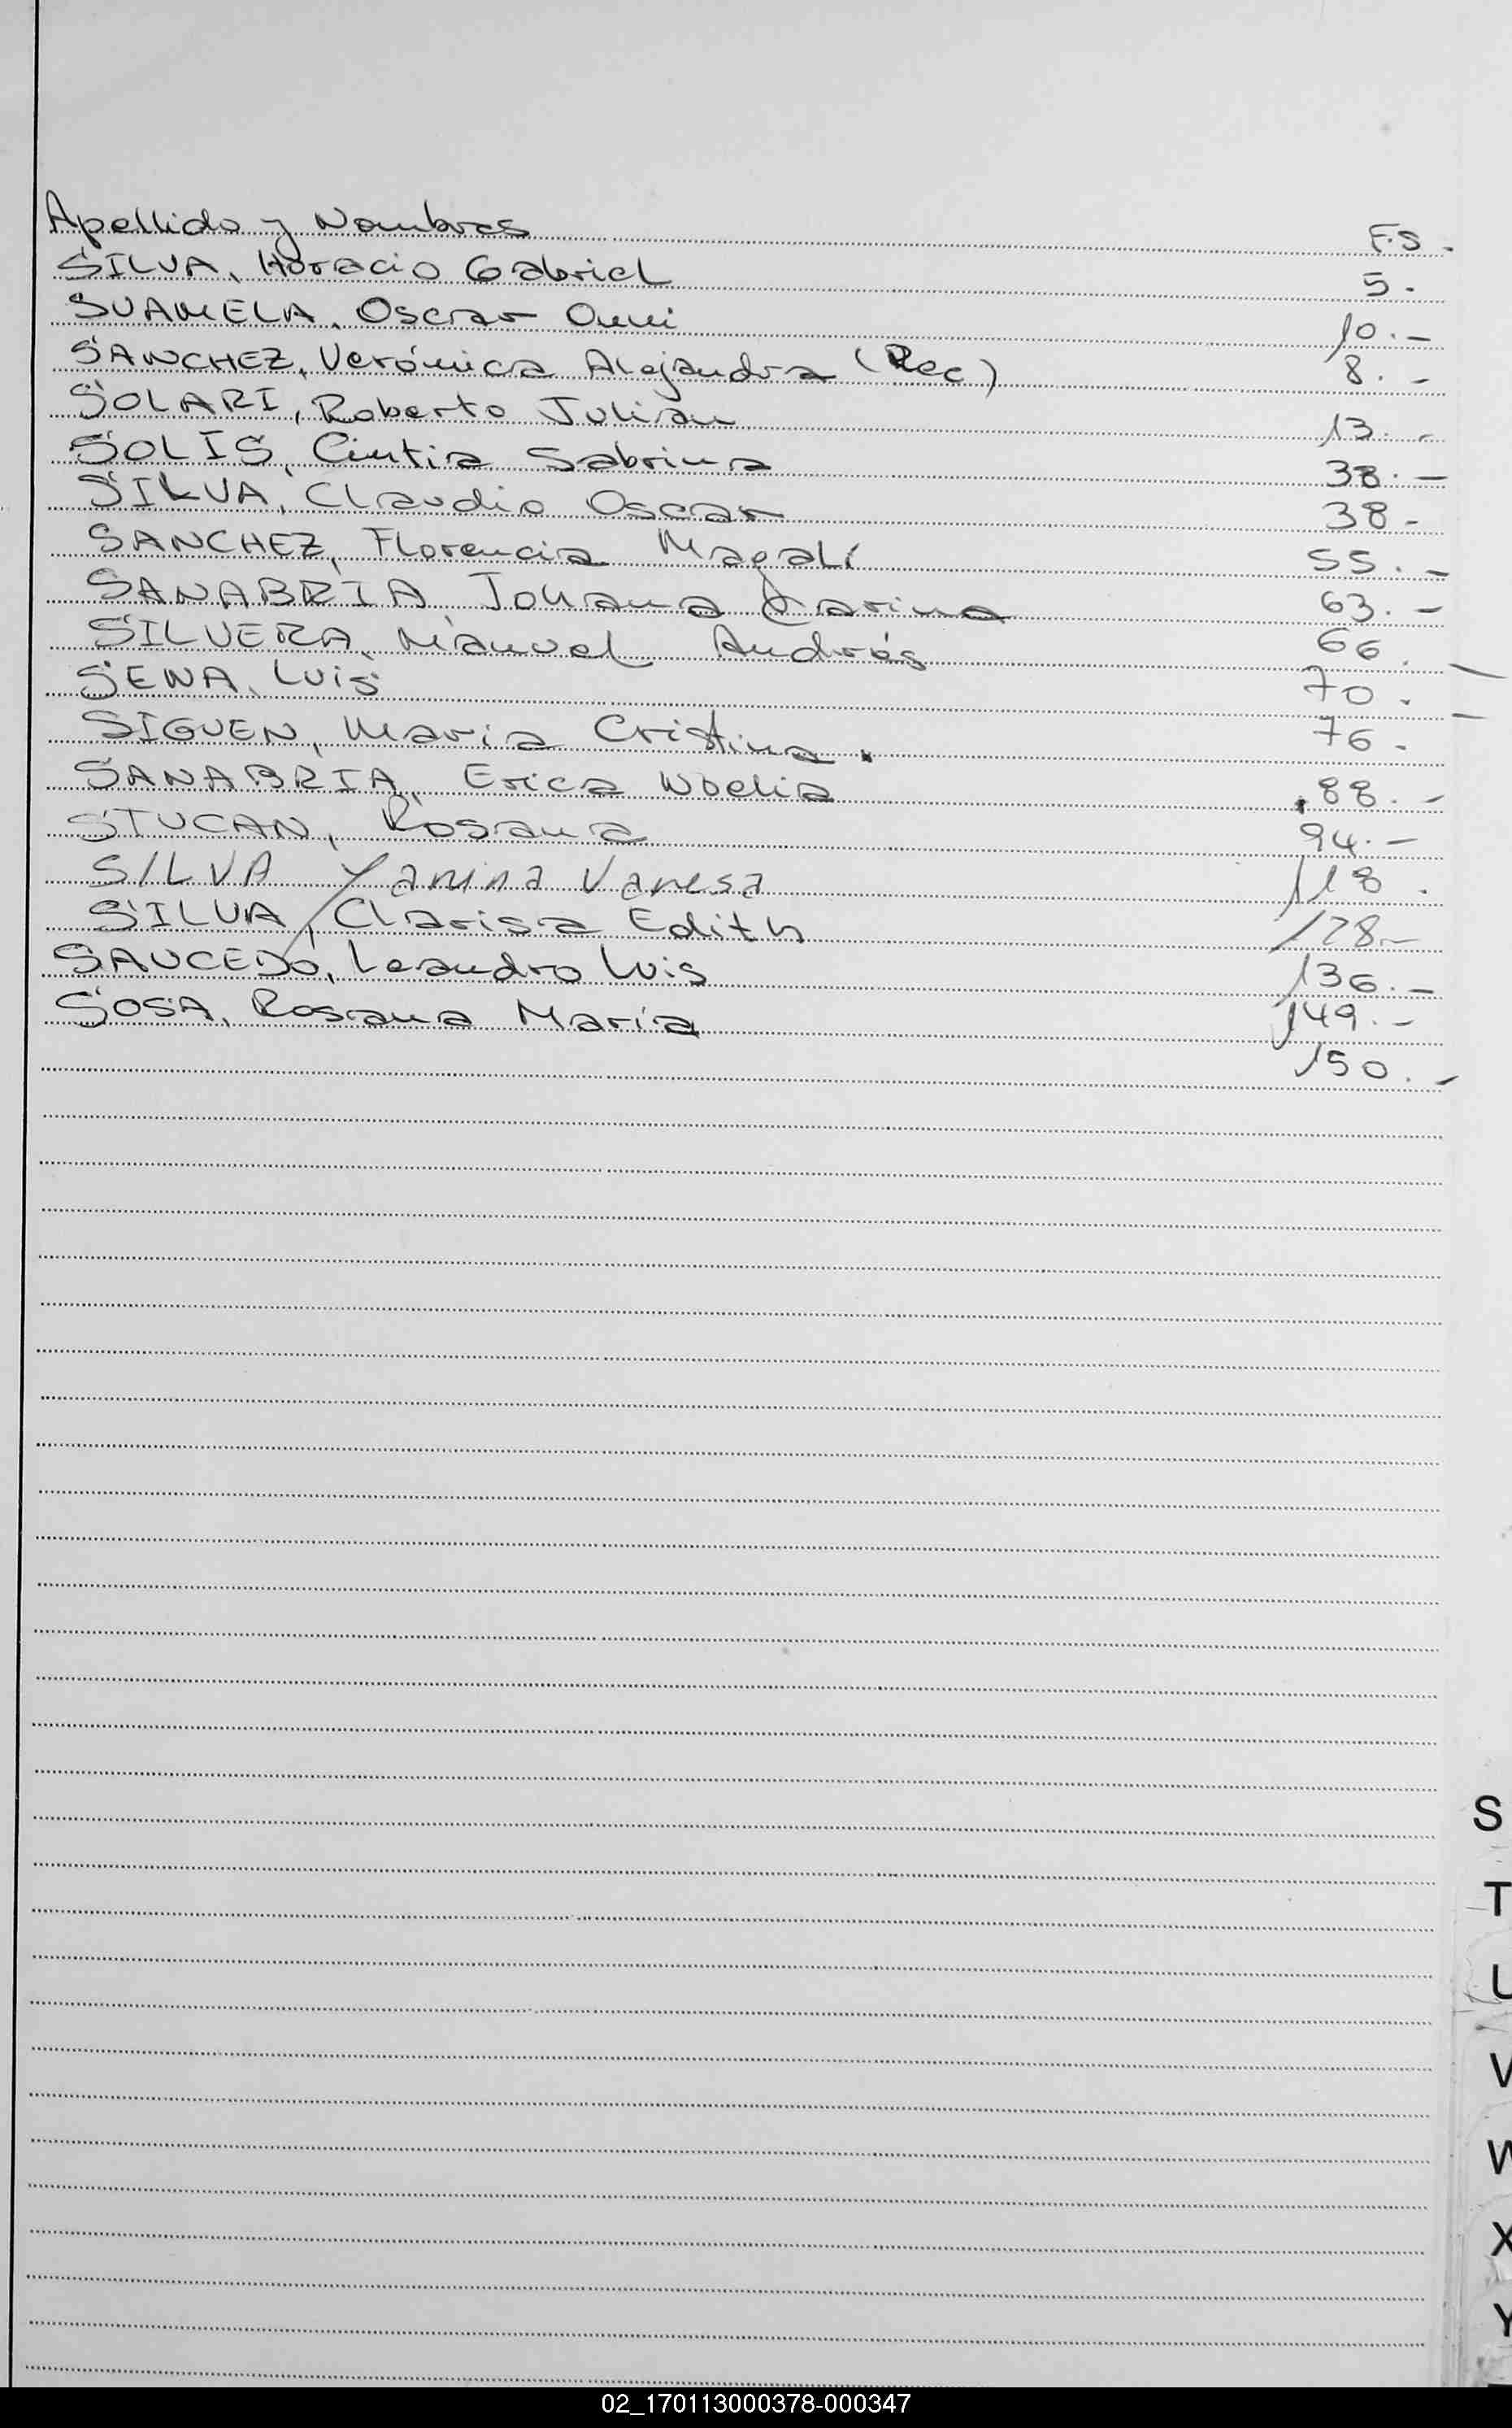 Apellido y Nombres F.S.
SILVA, Horacio Gabriel 5.
SUAMELA, Oscar 10.-
SANCHEZ, Verónica Alejandra (Rec) 8.-
SOLARI, Roberto Julian 13.-
SOLIS, Cintia Sabrina 38.-
SILVA, Claudio Oscar 38-
SANCHEZ, Florencia Magalí 55.-
SANABRIA Johana Karina 63.-
SILVERA, Manuel Andrés 66.-
SENA, Luis 70.-
SIGUEN, Maria Cristina. 76.
SANABRIA, Erica Noelia 88.-
STUCAN, Rosana 94.-
SILVA Yanina Vanesa 118.
SILVA, Clarisa Edith 128-
SAUCEDO, Leandro Luis 136.-
SOSA, Rosana María 149.-
150.-
S
T
U
V
W
X
Y
02_170113000378-000347